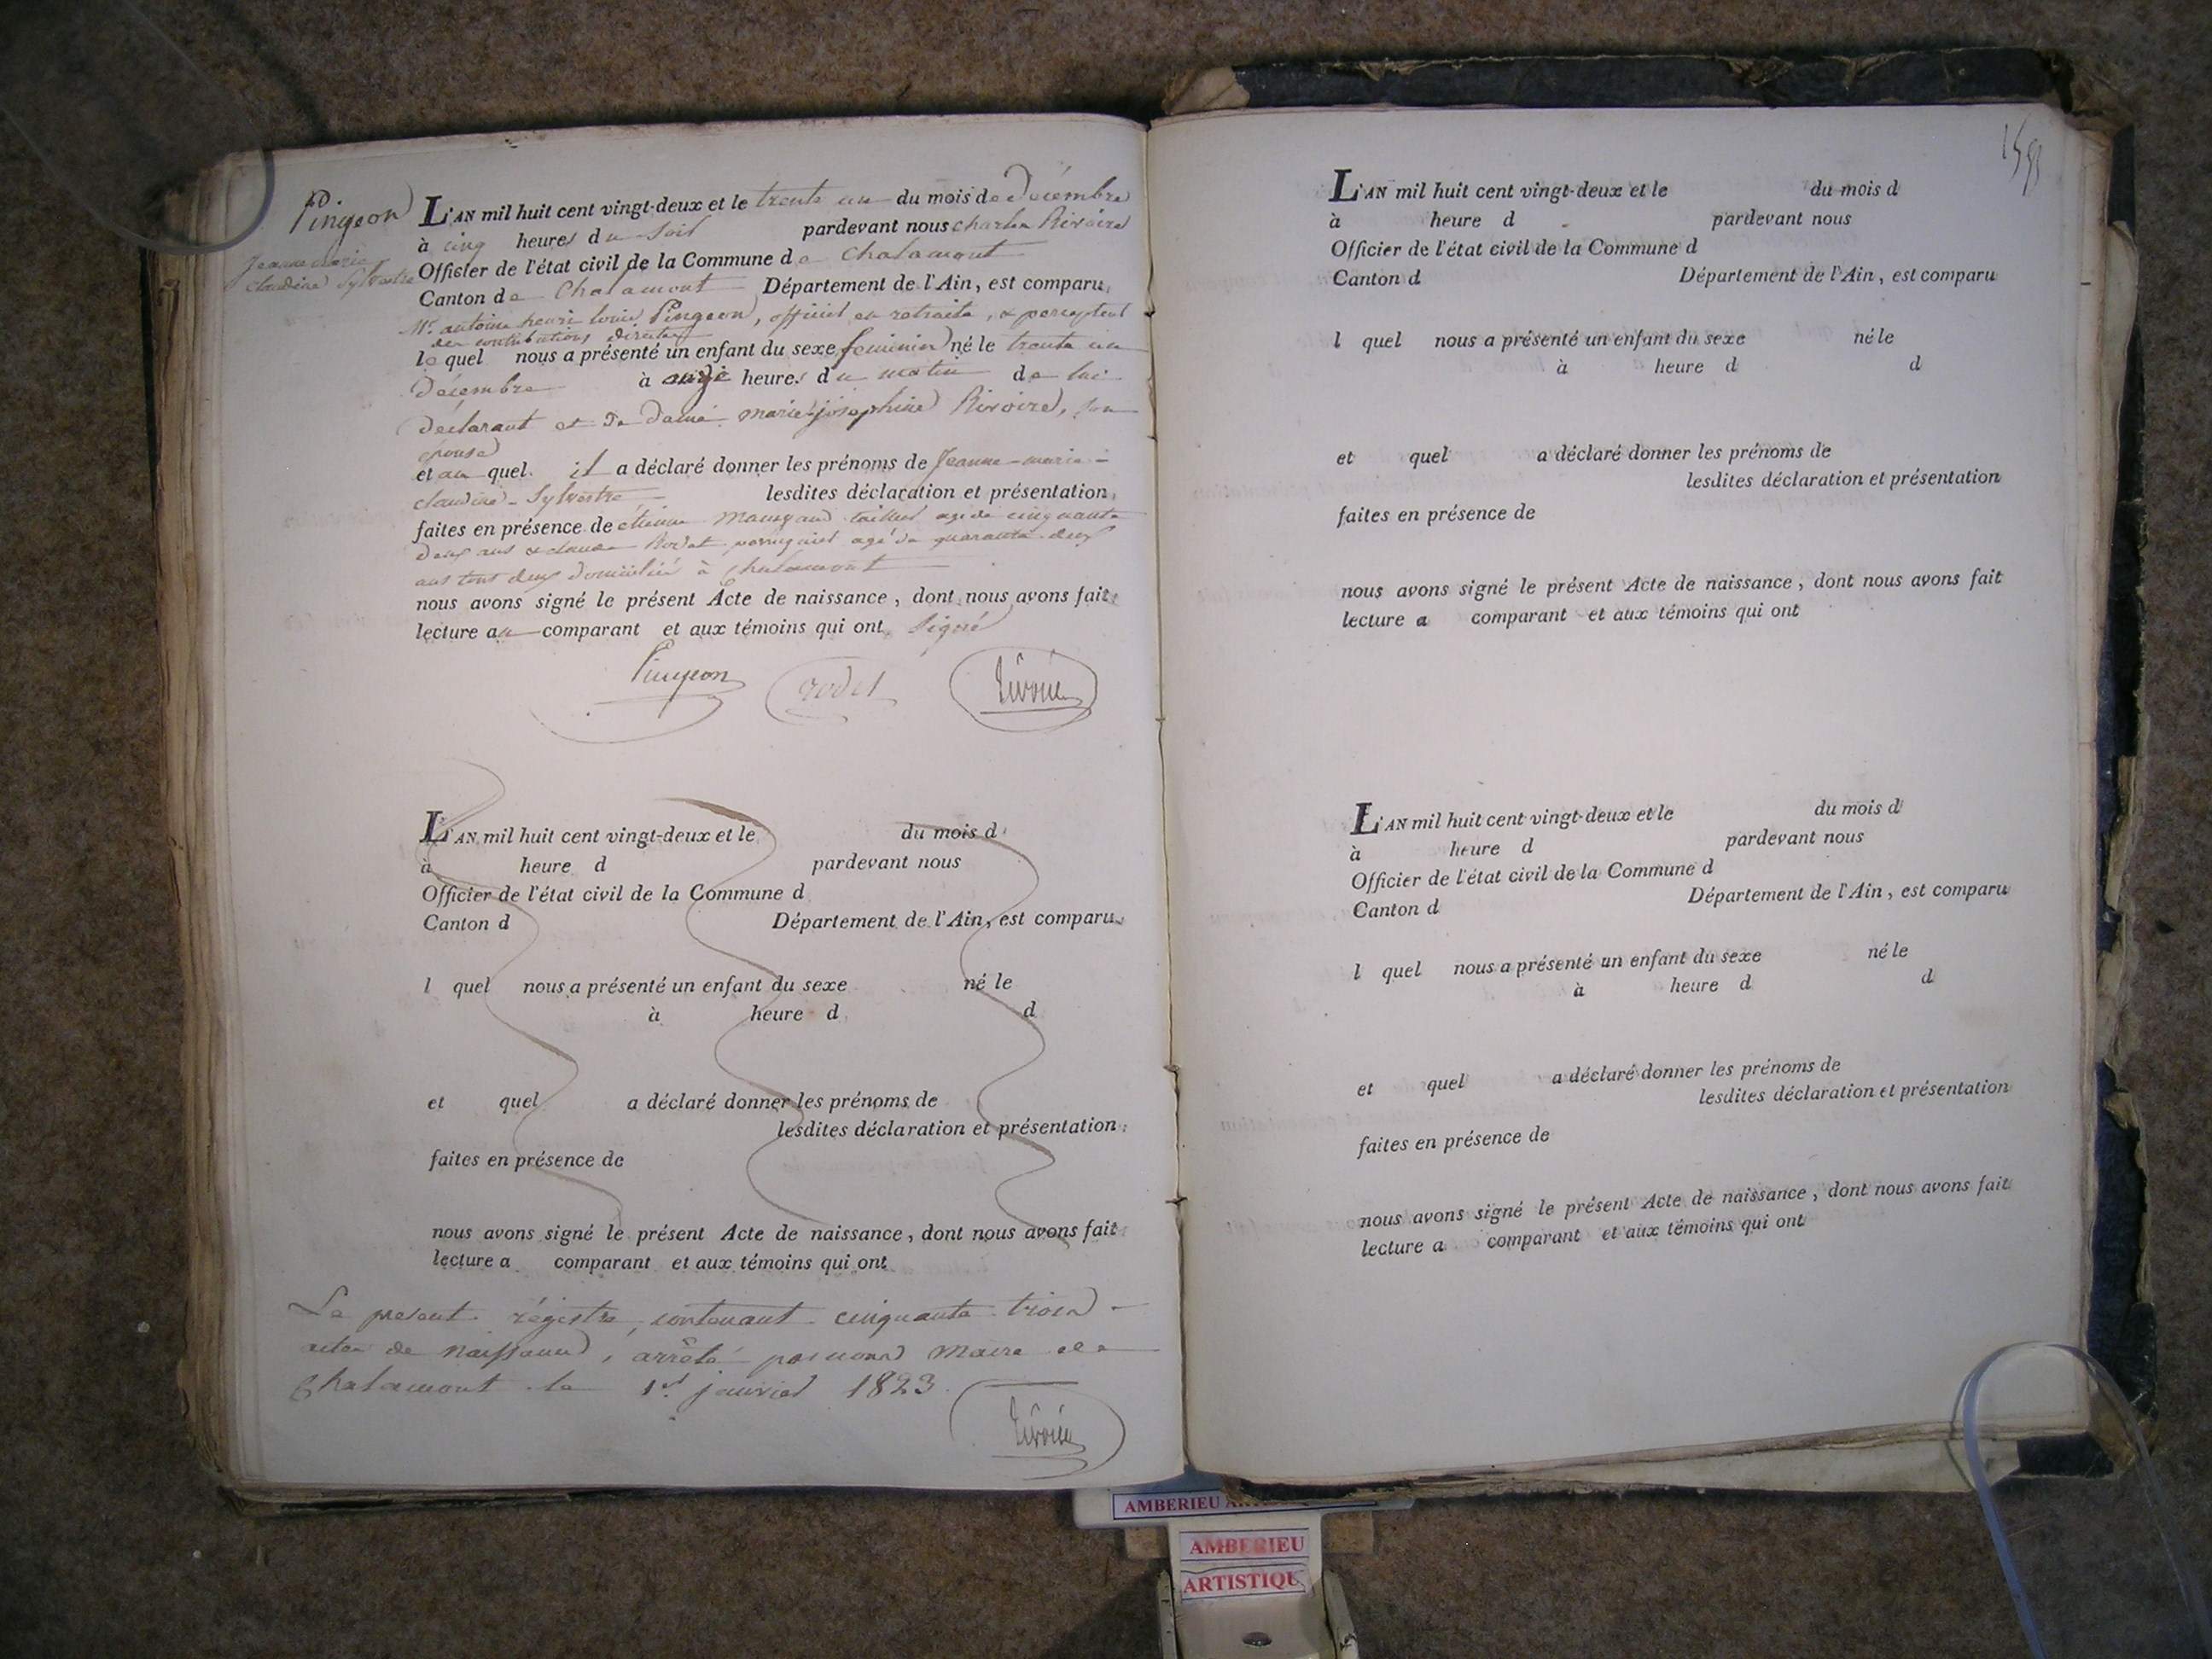 Pingeon
Jeanne marie
claudine Sylvestre
L'AN mil huit cent vingt-deux et le trente un du mois de Décembre
à cinq heures du soir pardevant nous charles Rivoire
Officier de l'état civil de la Commune de Chalamont
Canton de Chalamont Département de l'Ain, est comparu,
Mr. antoine henri louis Pingeon, officier en retraite, & percepteur
des contributions directes
le quel nous a présenté un enfant du sexe feminin né le trente un
Décembre à onze heures du matin de lui
déclarant et de Dame marie josephine Rivoire, son
épouse
et au quel il a déclaré donner les prénoms de Jeanne-marie-
claudine-Sylvestre lesdites déclaration et présentation,
faites en présence de étienne tailleur agé de cinquante
deux ans & claude Rodet perruquier agé de quarante deux
ans tous deux domiciliés à chalamont
nous avons signé le présent Acte de naissance, dont nous avons fait
lecture au comparant et aux témoins qui ont signé
Pingeon rodet Rivoire
L'AN mil huit cent vingt-deux et le du mois d
à heure d pardevant nous
Officier de l'état civil de la Commune d
Canton d Département de l'Ain, est comparu
l quel nous a présenté un enfant du sexe né le
à heure d d
et quel a déclaré donner les prénoms de
lesdites déclaration et présentation
faites en présence de
nous avons signé le présent Acte de naissance, dont nous avons fait
lecture a comparant et aux témoins qui ont
Le present régistre, contenant cinquante trois
actes de naissance, arrêté par nous Maire de
Chalamont le 1er janvier 1823
Rivoire
L'AN mil huit cent vingt-deux et le du mois d
à heure d pardevant nous
Officier de l'état civil de la Commune d
Canton d Département de l'Ain, est comparu
l quel nous a présenté un enfant du sexe né le
à heure d d
et quel a déclaré donner les prénoms de
lesdites déclaration et présentation
faites en présence de
nous avons signé le présent Acte de naissance, dont nous avons fait
lecture a comparant et aux témoins qui ont
L'AN mil huit cent vingt-deux et le du mois d
à heure d pardevant nous
Officier de l'état civil de la Commune d
Canton d Département de l'Ain, est comparu
l quel nous a présenté un enfant du sexe né le
à heure d d
et quel a déclaré donner les prénoms de
lesdites déclaration et présentation
faites en présence de
nous avons signé le présent Acte de naissance, dont nous avons fait
lecture a comparant et aux témoins qui ont
AMBERIEU
AMBERIEU
ARTISTIQU